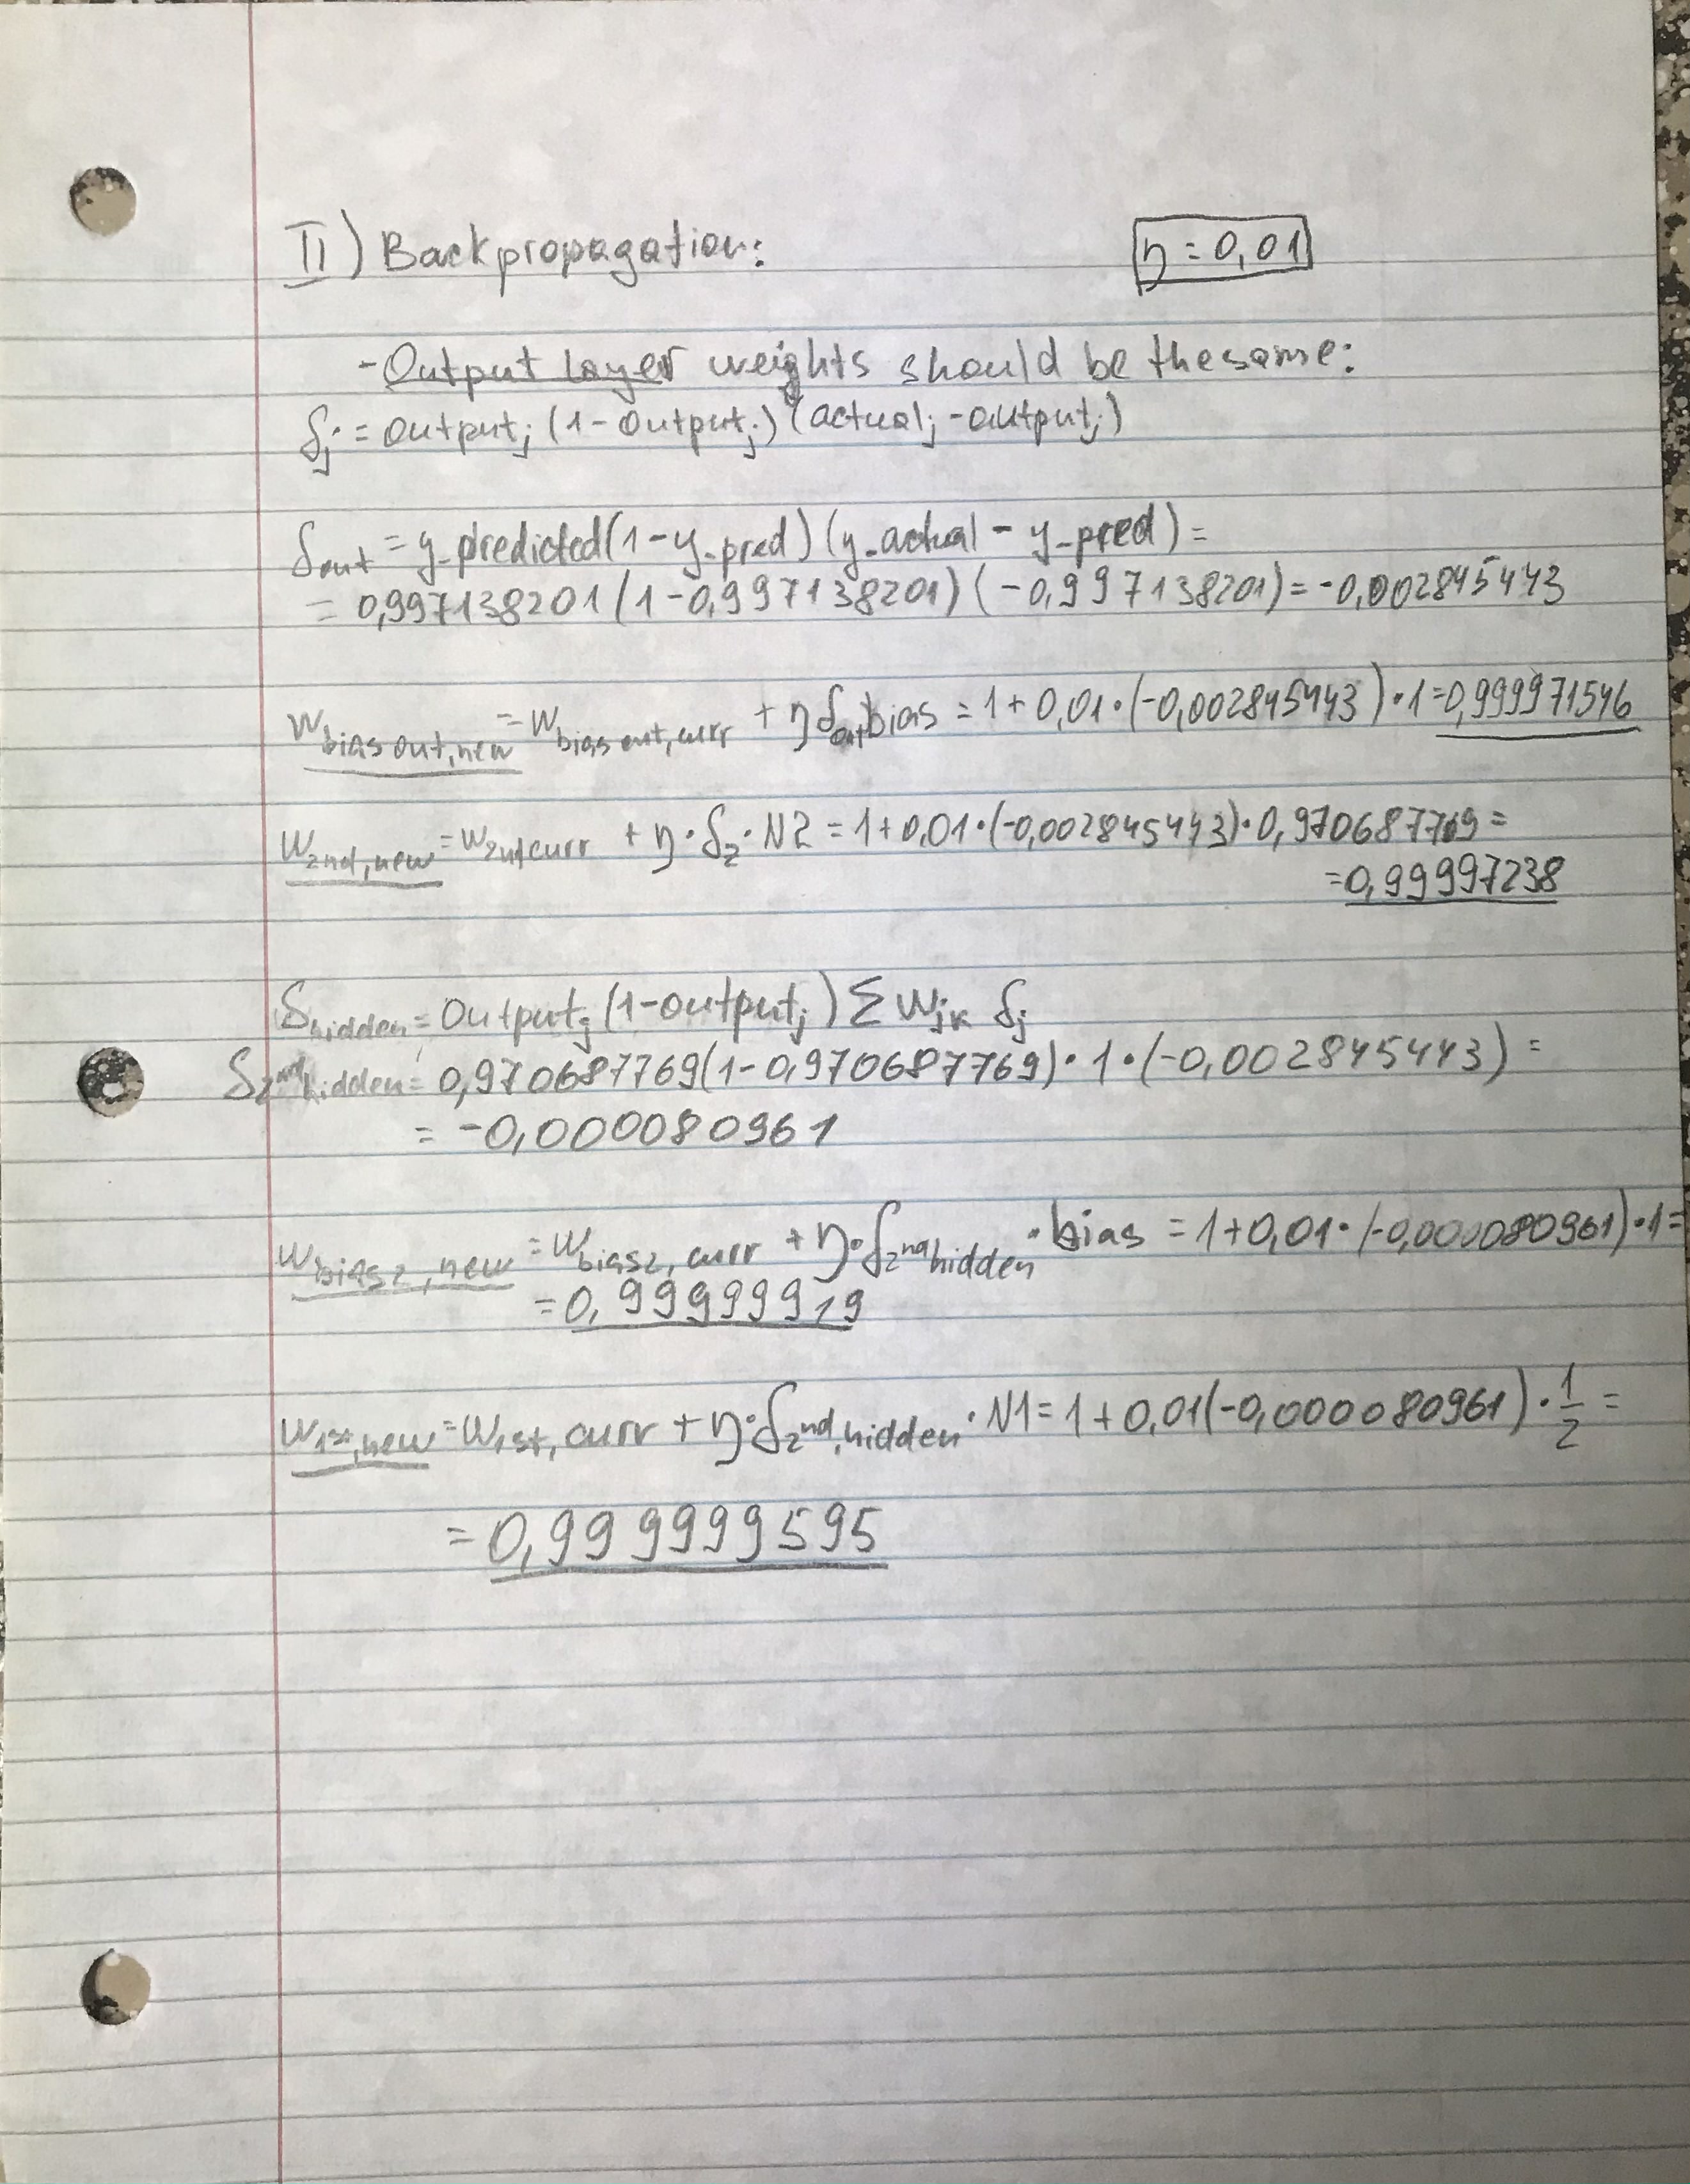 II) Backpropagation:
η = 0,01
- Output layer weights should be the same:
δj = outputj (1 - outputj) (actualj - outputj)
δout = y_predicted(1 - y_pred) (y_actual - y_pred) =
= 0,997138201 (1 - 0,997138201) (-0,997138201) = -0,002845443
Wbias out, new = Wbias out, curr + η δout bias = 1 + 0,01 · (-0,002845443) · 1 = 0,999971546
W2nd, new = W2nd, curr + η · δ2 · N2 = 1 + 0,01 · (-0,002845443) · 0,970687769 =
= 0,99997238
δhidden = Outputj (1 - outputj) Σ Wjk δj
δ2nd hidden = 0,970687769 (1 - 0,970687769) · 1 · (-0,002845443) =
= -0,000080961
Wbias2, new = Wbias2, curr + η · δ2nd hidden · bias = 1 + 0,01 · (-0,000080961) · 1 =
= 0,99999919
W1st, new = W1st, curr + η · δ2nd, hidden · N1 = 1 + 0,01 (-0,000080961) · 1/2 =
= 0,999999595